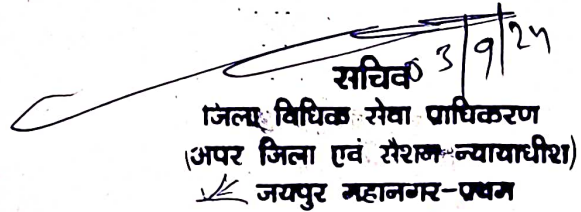 सचिव 03/9/24
जिला विधिक सेवा प्राधिकरण
(अपर जिला एवं सैशन न्यायाधीश)
जयपुर महानगर-प्रथम